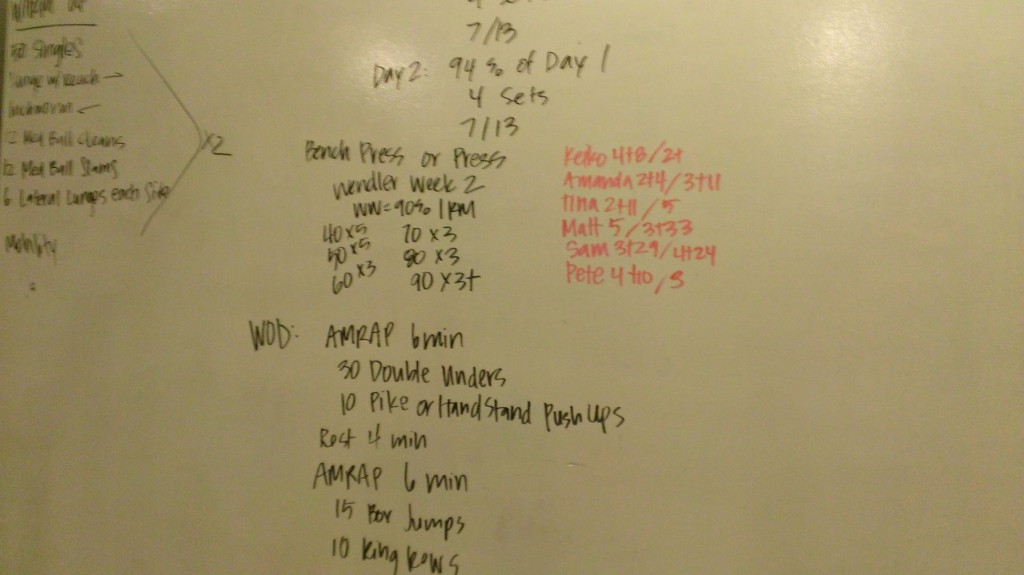 WARM UP
Singles
Lunge w/ Reach →
Inchworm ←
12 Med Ball Cleans
12 Med Ball Slams
6 Lateral Lunges each side
x2
Mobility
7/13
Day 2: 94% of Day 1
4 Sets
7/13
Bench Press or Press
Wendler Week 2
WW=90% 1RM
40x5 70x3
50x5 80x3
60x3 90x3+
Keiko 4+8/2+
Amanda 2+4/3+11
Tina 2+11/5
Matt 5/3+33
Sam 3+29/4+24
Pete 4+10/3
WOD: AMRAP 6min
30 Double Unders
10 Pike or HandStand Push Ups
Rest 4 min
AMRAP 6 min
15 Box Jumps
10 Ring Rows